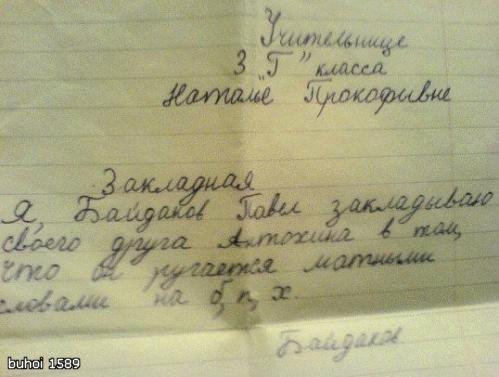 Учительнице
3 "Г" класса
Наталье Прокофивне
Закладная
Я, Байдаков Павел закладываю
своего друга Антохина в том,
что он ругается матными
словами на б, п, х.
Байдаков
buhoi 1589